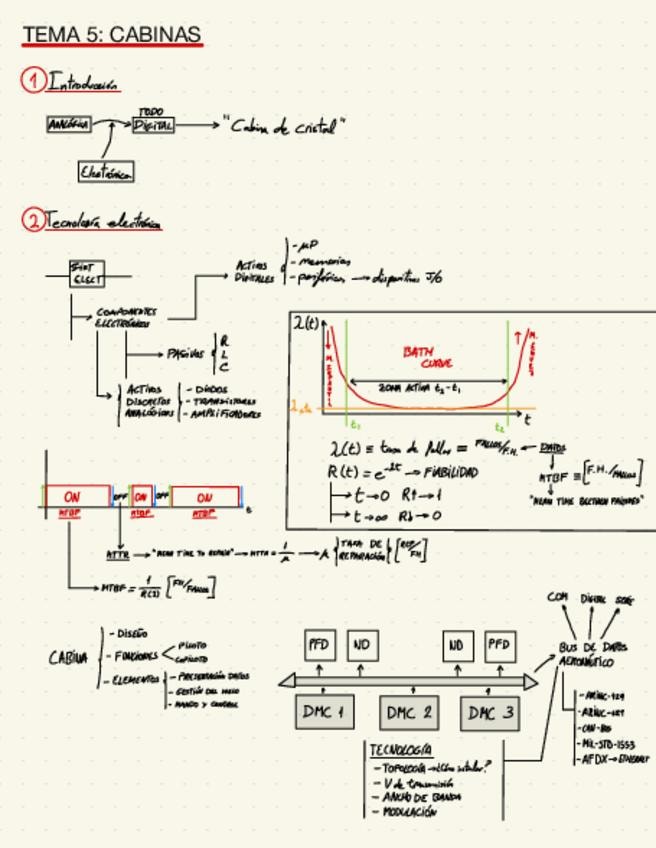 TEMA 5: CABINAS
1 Introducción
ANALÓGICA
TODO
DIGITAL
"Cabina de cristal"
Electrónica
2 Tecnología electrónica
ELECT
COMPONENTES
ELECTRÓNICOS
ACTIVOS
DIGITALES
- μP
- memorias
- periféricos → dispositivos I/O
PASIVOS
R
L
C
ACTIVOS
DISCRETOS
ANALÓGICOS
- DIODOS
- TRANSISTORES
- AMPLIFICADORES
λ(t)
M. INFANTIL
BATH
CURVE
ZONA ACTIVA t₂-t₁
t₁
t₂
t
λ(t) ≡ tasa de fallos = FALLOS/F.H. ← DATOS
R(t) = e^-λt → FIABILIDAD
t→0 R↑→1
t→∞ R↓→0
MTBF ≡ [F.H./FALLOS]
"MEAN TIME BETWEEN FAILURES"
ON
OFF
ON
OFF
ON
t
MTBF
MTBF
MTBF
MTTR → "MEAN TIME TO REPAIR" → MTTR = 1/μ → μ
TASA DE
REPARACIÓN
[REP/FH]
MTBF = [FH/FALLOS]
CABINA
- DISEÑO
- FUNCIONES
PILOTO
COPILOTO
- ELEMENTOS
- PRESENTACIÓN DATOS
- GESTIÓN DEL VUELO
- MANDO Y CONTROL
PFD
ND
ND
PFD
DMC 1
DMC 2
DMC 3
COM
DIGITAL
BUS DE DATOS
AERONÁUTICO
- ARINC-429
- CAN-BUS
- MIL-STD-1553
- AFDX → ETHERNET
TECNOLOGÍA
- TOPOLOGÍA → ¿Cómo instalar?
- V de transmisión
- ANCHO DE BANDA
- MODULACIÓN